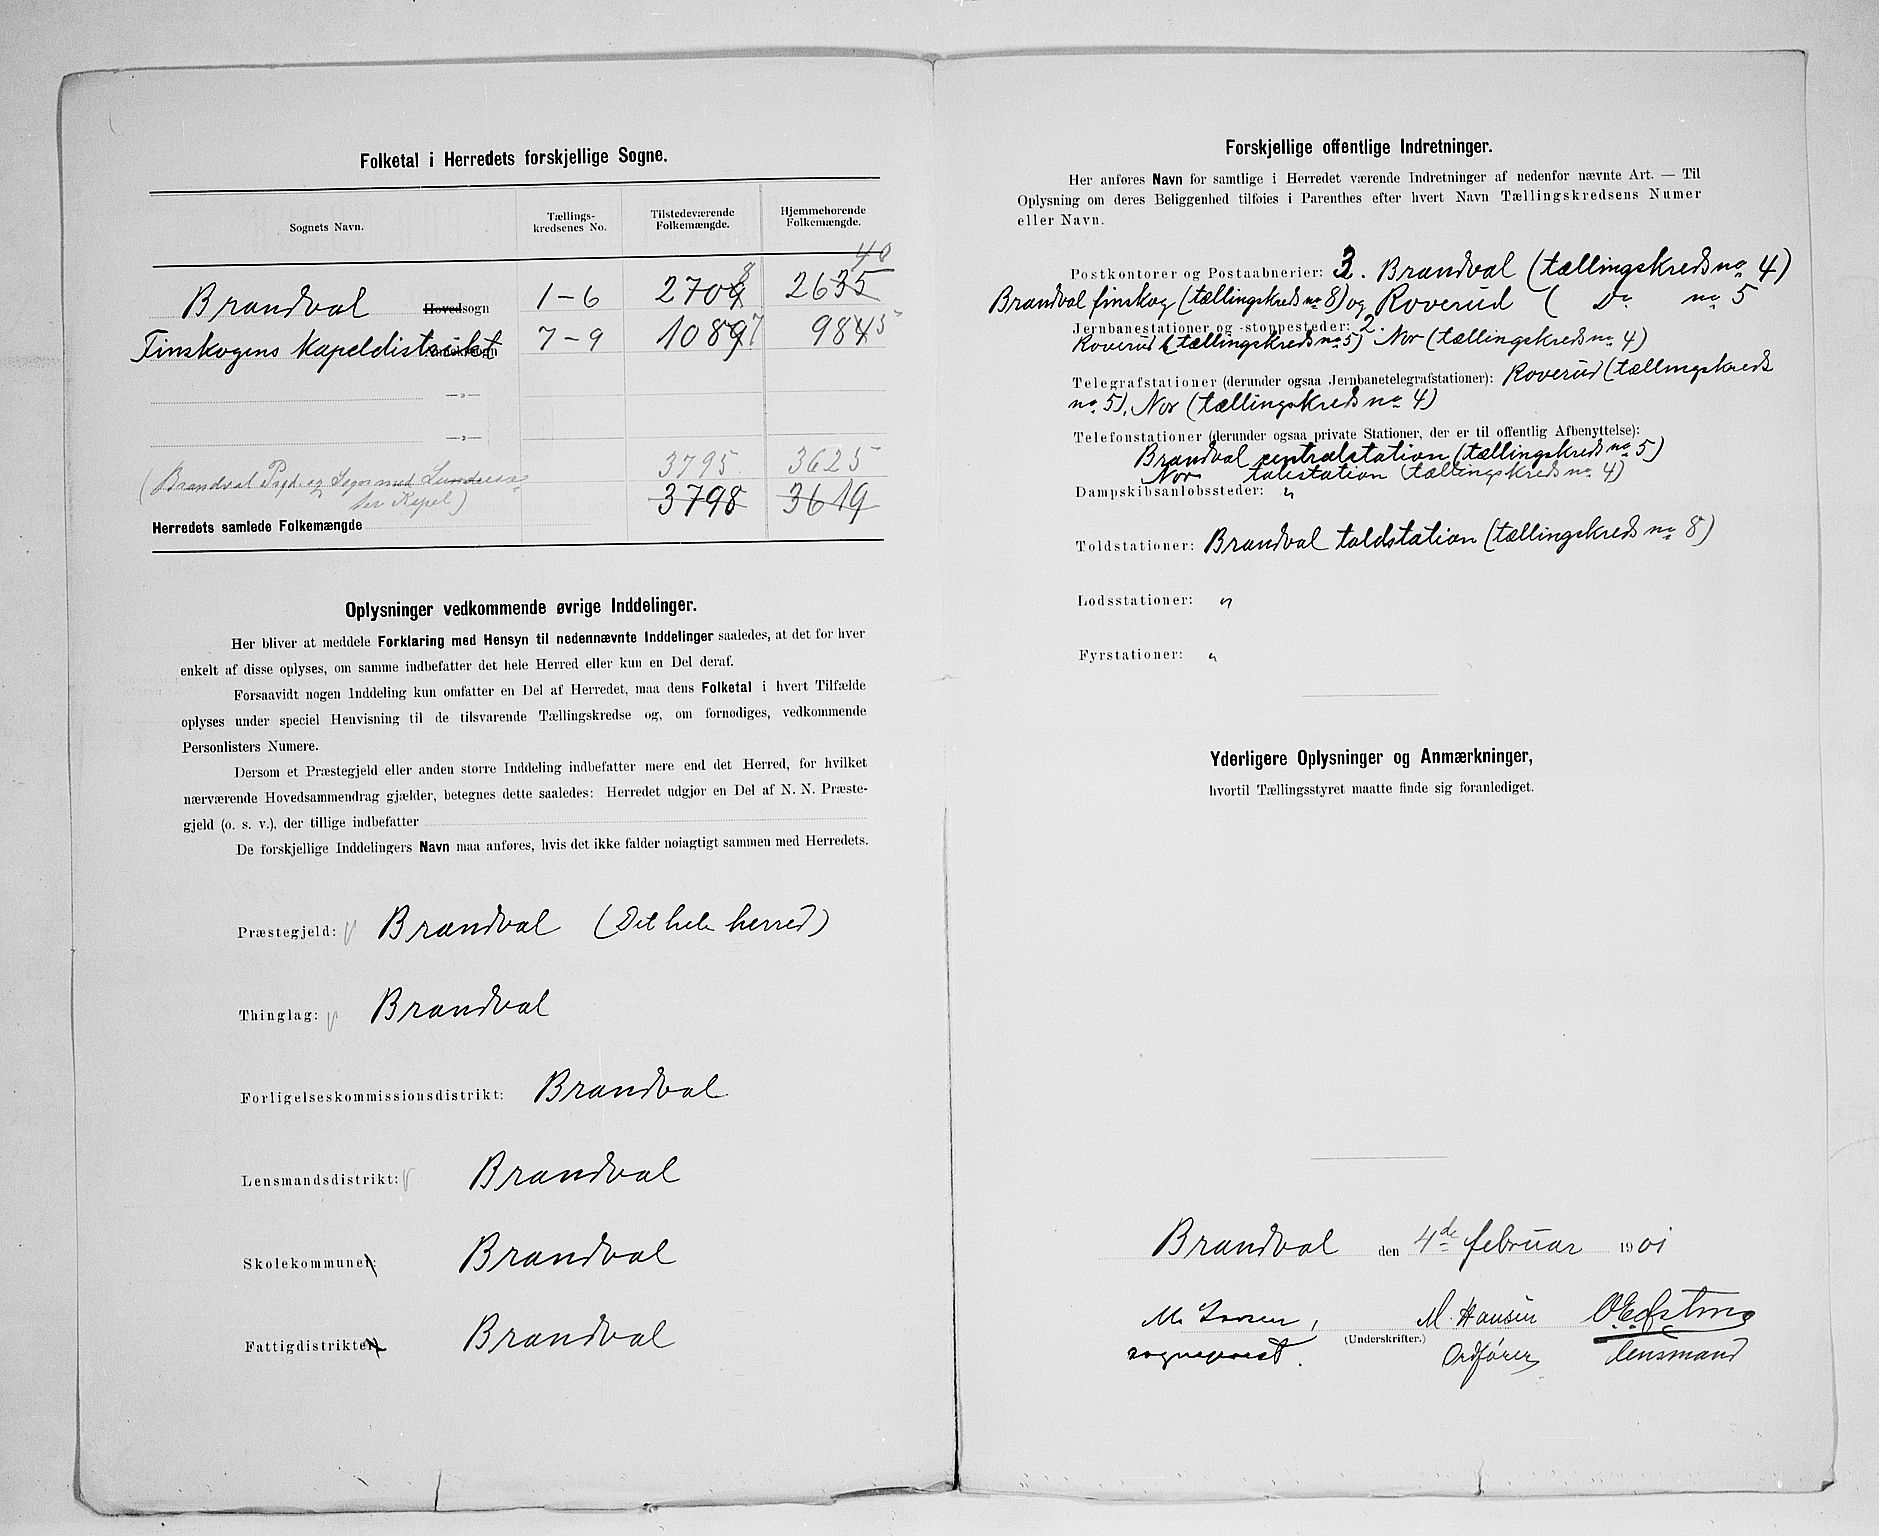 Folketal i Herredets forskjellige Sogne.
Sognets Navn.
Tællings-
kredsenes No.
Tilstedeværende
Folkemængde.
Hjemmehørende
Folkemængde.
40
Brandval Hovedsogn 1-6 2709 8 2635
Finskogens Kapeldistrikt 7-9 1089 7 984 5
—»—
—»—
3795 3625
(Brandval Pgd. og Sogn med
Kapel)
3798 3619
Herredets samlede Folkemængde
Oplysninger vedkommende øvrige Inddelinger.
Her bliver at meddele Forklaring med Hensyn til nedennævnte Inddelinger saaledes, at det for hver
enkelt af disse oplyses, om samme indbefatter det hele Herred eller kun en Del deraf.
Forsaavidt nogen Inddeling kun omfatter en Del af Herredet, maa dens Folketal i hvert Tilfælde
oplyses under speciel Henvisning til de tilsvarende Tællingskredse og, om fornødiges, vedkommende
Personlisters Numere.
Dersom et Præstegjeld eller anden større Inddeling indbefatter mere end det Herred, for hvilket
nærværende Hovedsammendrag gjælder, betegnes dette saaledes: Herredet udgjør en Del af N. N. Præste-
gjeld (o. s. v.), der tillige indbefatter
De forskjellige Inddelingers Navn maa anføres, hvis det ikke falder nøiagtigt sammen med Herredets.
Præstegjeld: Brandval (Det hele herred)
Thinglag: Brandval
Forligelseskommissionsdistrikt: Brandval
Lensmandsdistrikt: Brandval
Skolekommuner: Brandval
Fattigdistrikter: Brandval
Forskjellige offentlige Indretninger.
Her anføres Navn for samtlige i Herredet værende Indretninger af nedenfor nævnte Art. — Til
Oplysning om deres Beliggenhed tilføies i Parenthes efter hvert Navn Tællingskredsens Numer
eller Navn.
Postkontorer og Postaabnerier: 3. Brandval (tællingskreds no. 4)
Brandval finskog (tællingskreds no. 8) og Roverud ( Do. no. 5
Jernbanestationer og -stoppesteder: 2.
Roverud (tællingskreds no. 5) Nor (tællingskreds no. 4)
Telegrafstationer (derunder ogsaa Jernbanetelegrafstationer): Roverud (tællingskreds
no. 5), Nor (tællingskreds no. 4)
Telefonstationer (derunder ogsaa private Stationer, der er til offentlig Afbenyttelse):
Brandval centralstation (tællingskreds no. 5)
Nor talestation (tællingskreds no. 4)
Dampskibsanløbssteder: "
Toldstationer: Brandval toldstation (tællingskreds no. 8)
Lodsstationer: "
Fyrstationer: "
Yderligere Oplysninger og Anmærkninger,
hvortil Tællingsstyret maatte finde sig foranlediget.
Brandval den 4de februar 1901
M. Hansen
sogneprest. (Underskrifter.) Ordfører lensmand